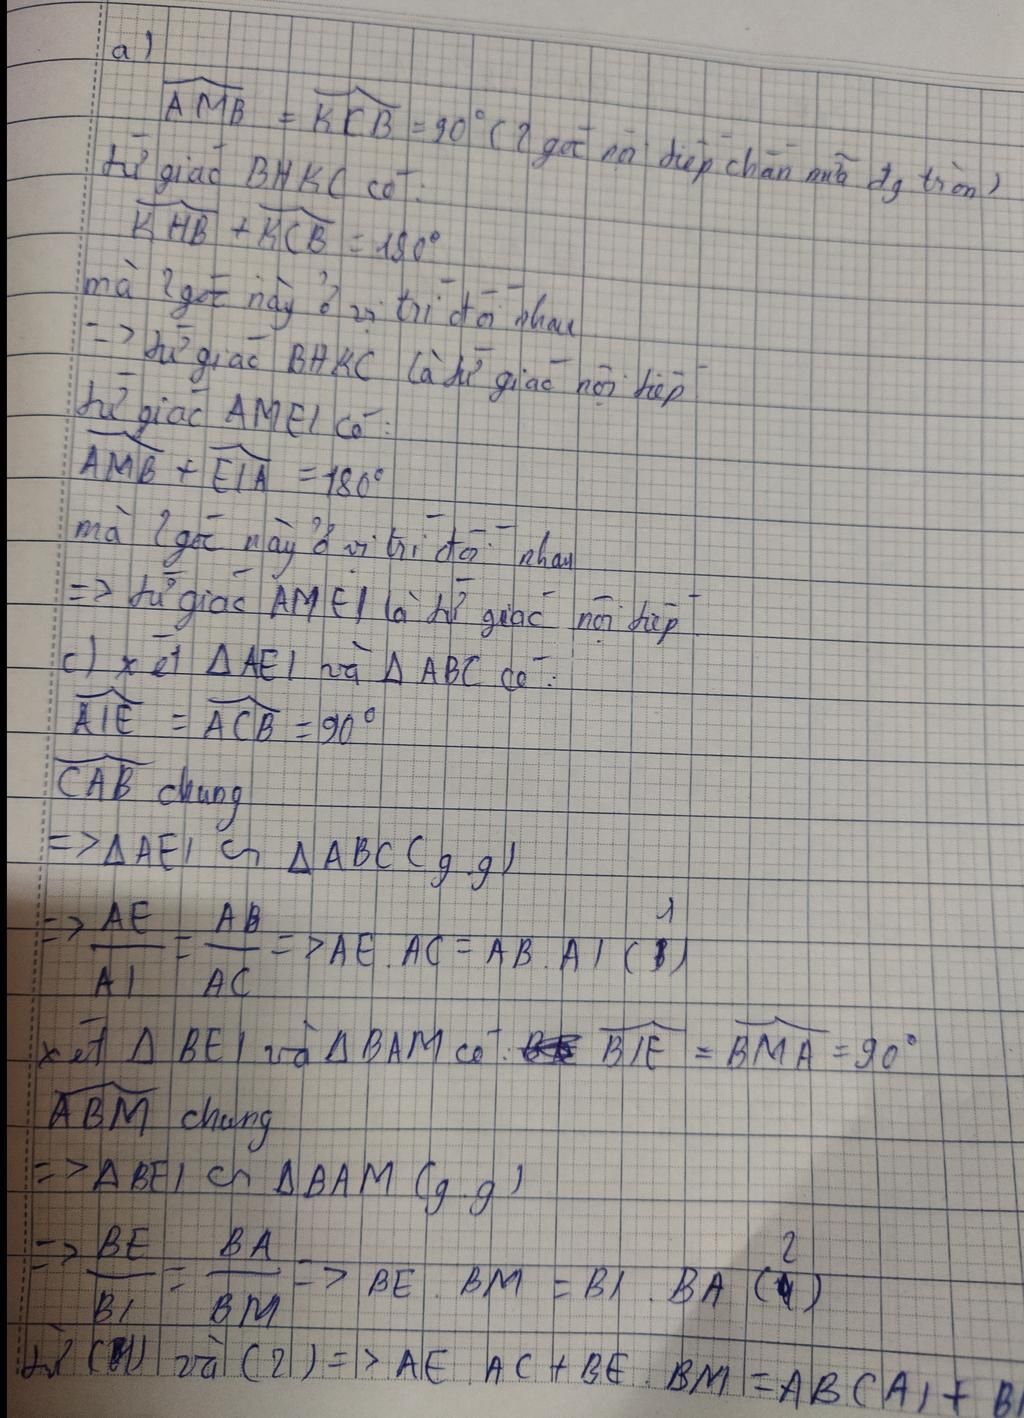 a)
AMB = KCB = 90° (2 góc nội tiếp chắn nửa đg tròn)
tứ giác BHKC có:
KHB + KCB = 180°
mà 2 góc này ở vị trí đối nhau
=> tứ giác BHKC là tứ giác nội tiếp
tứ giác AMEI có:
AMB + EIA = 180°
mà 2 góc này ở vị trí đối nhau
=> tứ giác AMEI là tứ giác nội tiếp
c) xét Δ AEI và Δ ABC có:
AIE = ACB = 90°
CAB chung
=> Δ AEI ∽ Δ ABC (g.g)
=> AE/AI = AB/AC => AE . AC = AB . AI (1)
xét Δ BEI và Δ BAM có: BIE = BMA = 90°
ABM chung
=> Δ BEI ∽ Δ BAM (g.g)
=> BE/BI = BA/BM => BE . BM = BI . BA (2)
từ (1) và (2) => AE . AC + BE . BM = AB(AI + BI